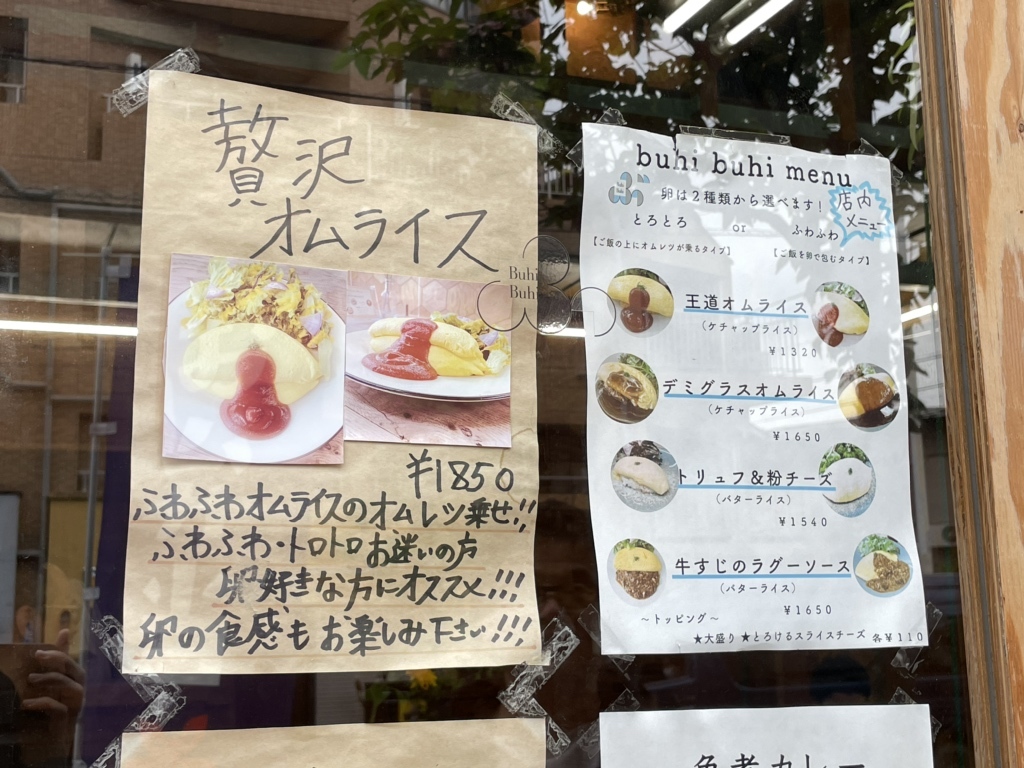 贅沢
オムライス
¥1850
ふわふわオムライスのオムレツ乗せ!!
ふわふわ・トロトロお迷いの方
卵好きな方にオススメ!!!
卵の食感もお楽しみ下さい!!!
Buhi
Buhi
buhi buhi menu
卵は2種類から選べます!
店内
メニュー
とろとろ or ふわふわ
【ご飯の上にオムレツが乗るタイプ】 【ご飯を卵で包むタイプ】
王道オムライス
(ケチャップライス)
¥1320
デミグラスオムライス
(ケチャップライス)
¥1650
トリュフ&粉チーズ
(バターライス)
¥1540
牛すじのラグーソース
(バターライス)
¥1650
～トッピング～
★大盛り ★とろけるスライスチーズ 各¥110